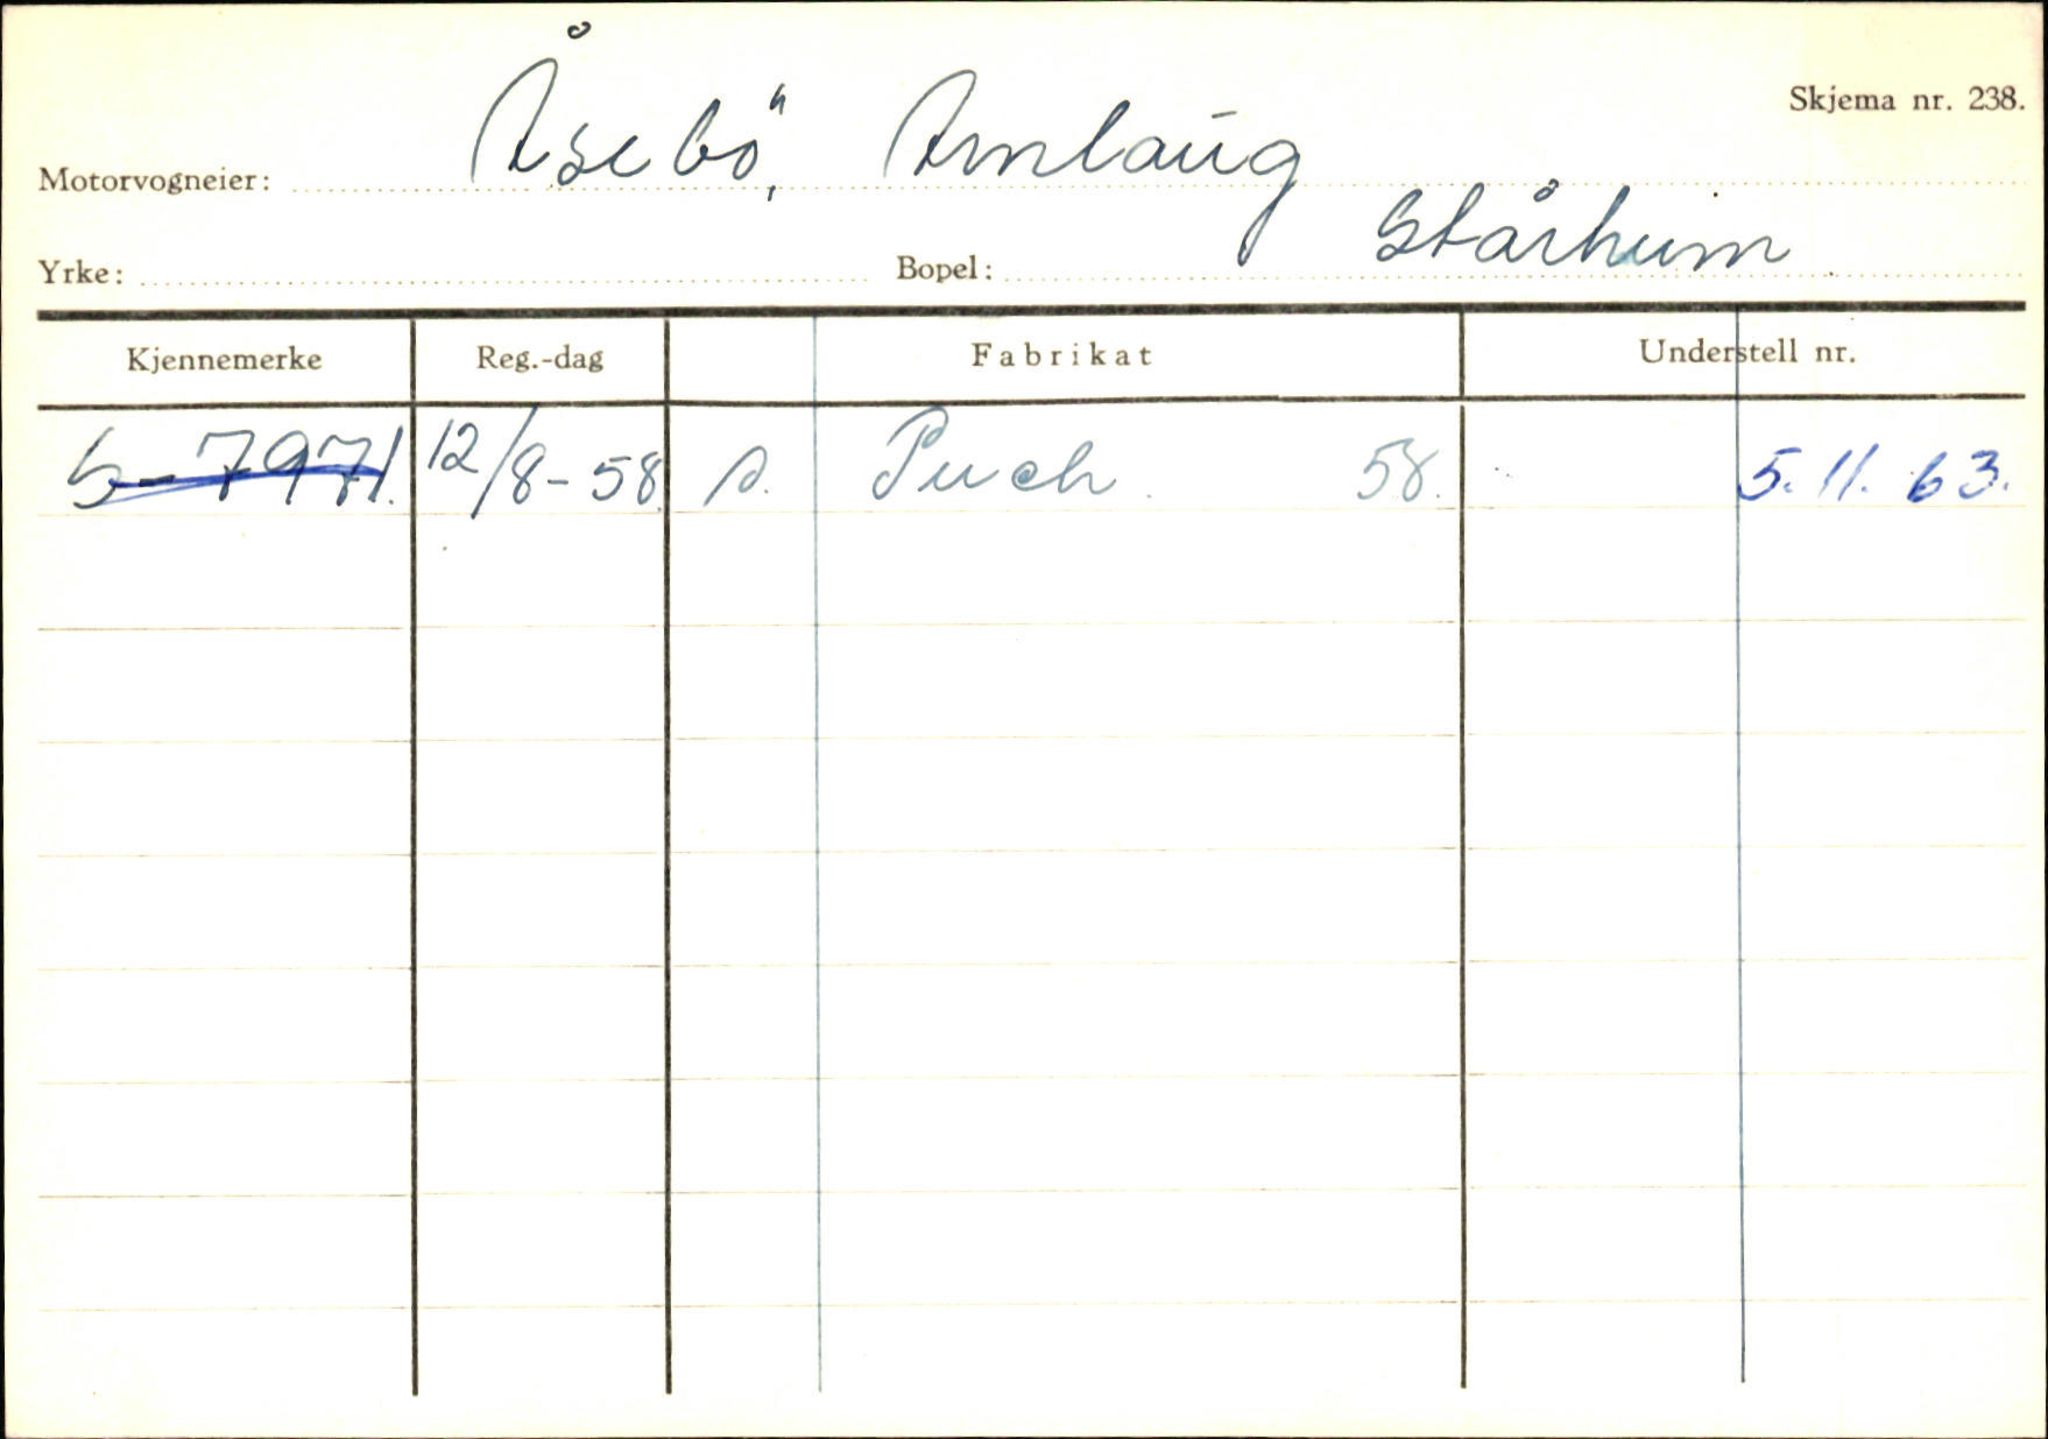 Skjema nr. 238.
Motorvogneier: Åsebö, Amlaug
Yrke: Bopel: Stårheim
Kjennemerke Reg.-dag Fabrikat Understell nr.
S-7971. 12/8-58. s. Puch 58. 5.11.63.